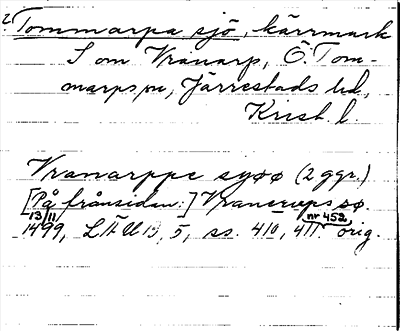 2. Tommarpa sjö, kärrmark
S om Vranarp, Ö. Tom-
marps sn, Järrestads hd,
Krist. l.
Vranarppe syøø (2 ggr.)
[På frånsidan:] Vranerups sø.
13/11 1499, LÄU 15, 5, ss. 410, 411. nr 452 orig.